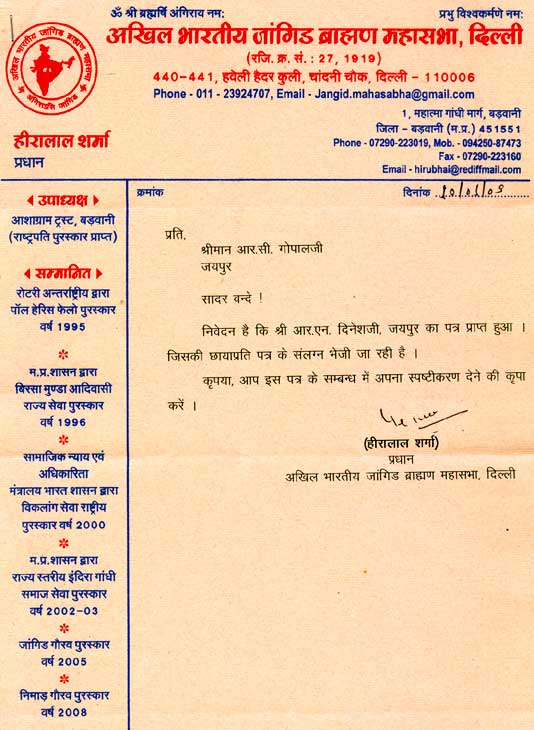 ॐ श्री ब्रह्मर्षि अंगिराय नम:
प्रभु विश्वकर्मणे नम:
अखिल भारतीय जांगिड ब्राह्मण महासभा
अंगिराऽसि जांगिड
अखिल भारतीय जांगिड ब्राह्मण महासभा, दिल्ली
(रजि. क्र. सं. : 27, 1919)
440-441, हवेली हैदर कुली, चांदनी चौक, दिल्ली - 110006
Phone - 011 - 23924707, Email - Jangid.mahasabha@gmail.com
हीरालाल शर्मा
प्रधान
1, महात्मा गांधी मार्ग, बड़वानी
जिला - बड़वानी (म.प्र.) 451551
Phone - 07290-223019, Mob. - 094250-87473
Fax - 07290-223160
Email - hirubhai@rediffmail.com
उपाध्यक्ष
आशाग्राम ट्रस्ट, बड़वानी
(राष्ट्रपति पुरस्कार प्राप्त)
सम्मानित
रोटरी अन्तर्राष्ट्रीय द्वारा
पॉल हेरिस फेलो पुरस्कार
वर्ष 1995
म.प्र.शासन द्वारा
बिरसा मुण्डा आदिवासी
राज्य सेवा पुरस्कार
वर्ष 1996
सामाजिक न्याय एवं
अधिकारिता
मंत्रालय भारत शासन द्वारा
विकलांग सेवा राष्ट्रीय
पुरस्कार वर्ष 2000
म.प्र.शासन द्वारा
राज्य स्तरीय इंदिरा गांधी
समाज सेवा पुरस्कार
वर्ष 2002-03
जांगिड गौरव पुरस्कार
वर्ष 2005
निमाड़ गौरव पुरस्कार
वर्ष 2008
क्रमांक
दिनांक
प्रति,
श्रीमान आर.सी. गोपालजी
जयपुर
सादर वन्दे !
निवेदन है कि श्री आर.एन. दिनेशजी, जयपुर का पत्र प्राप्त हुआ ।
जिसकी छायाप्रति पत्र के संलग्न भेजी जा रही है ।
कृपया, आप इस पत्र के सम्बन्ध में अपना स्पष्टीकरण देने की कृपा
करें ।
(हीरालाल शर्मा)
प्रधान
अखिल भारतीय जांगिड ब्राह्मण महासभा, दिल्ली